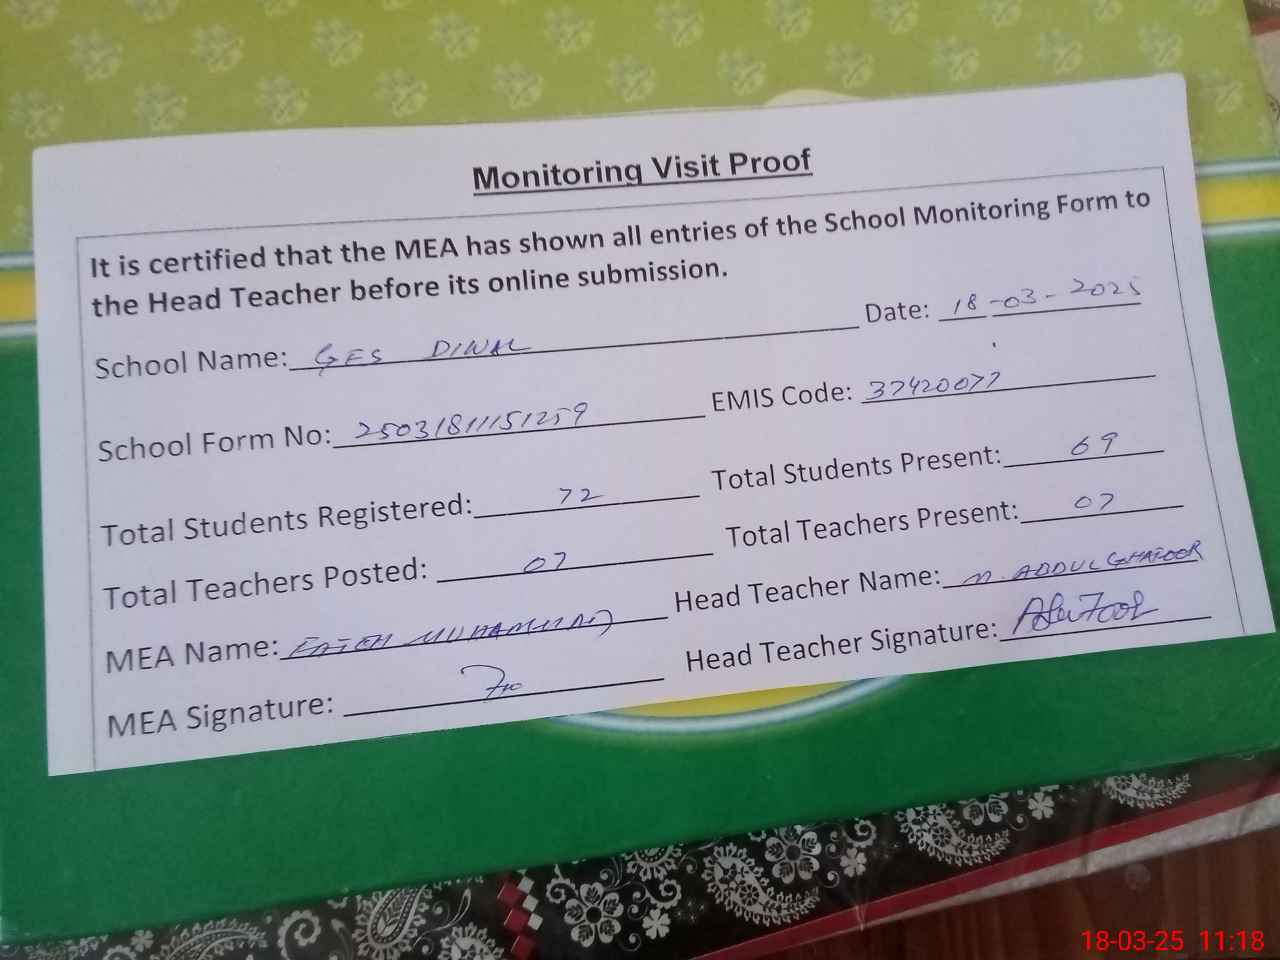 Monitoring Visit Proof
It is certified that the MEA has shown all entries of the School Monitoring Form to
the Head Teacher before its online submission.
School Name: GES DIWAL Date: 18-03-2025
School Form No: 25031811151259 EMIS Code: 37420077
Total Students Registered: 72 Total Students Present: 69
Total Teachers Posted: 07 Total Teachers Present: 07
MEA Name: FATEH MUHAMMAD Head Teacher Name: M. ABDUL GHAFOOR
MEA Signature: Head Teacher Signature:
18-03-25 11:18